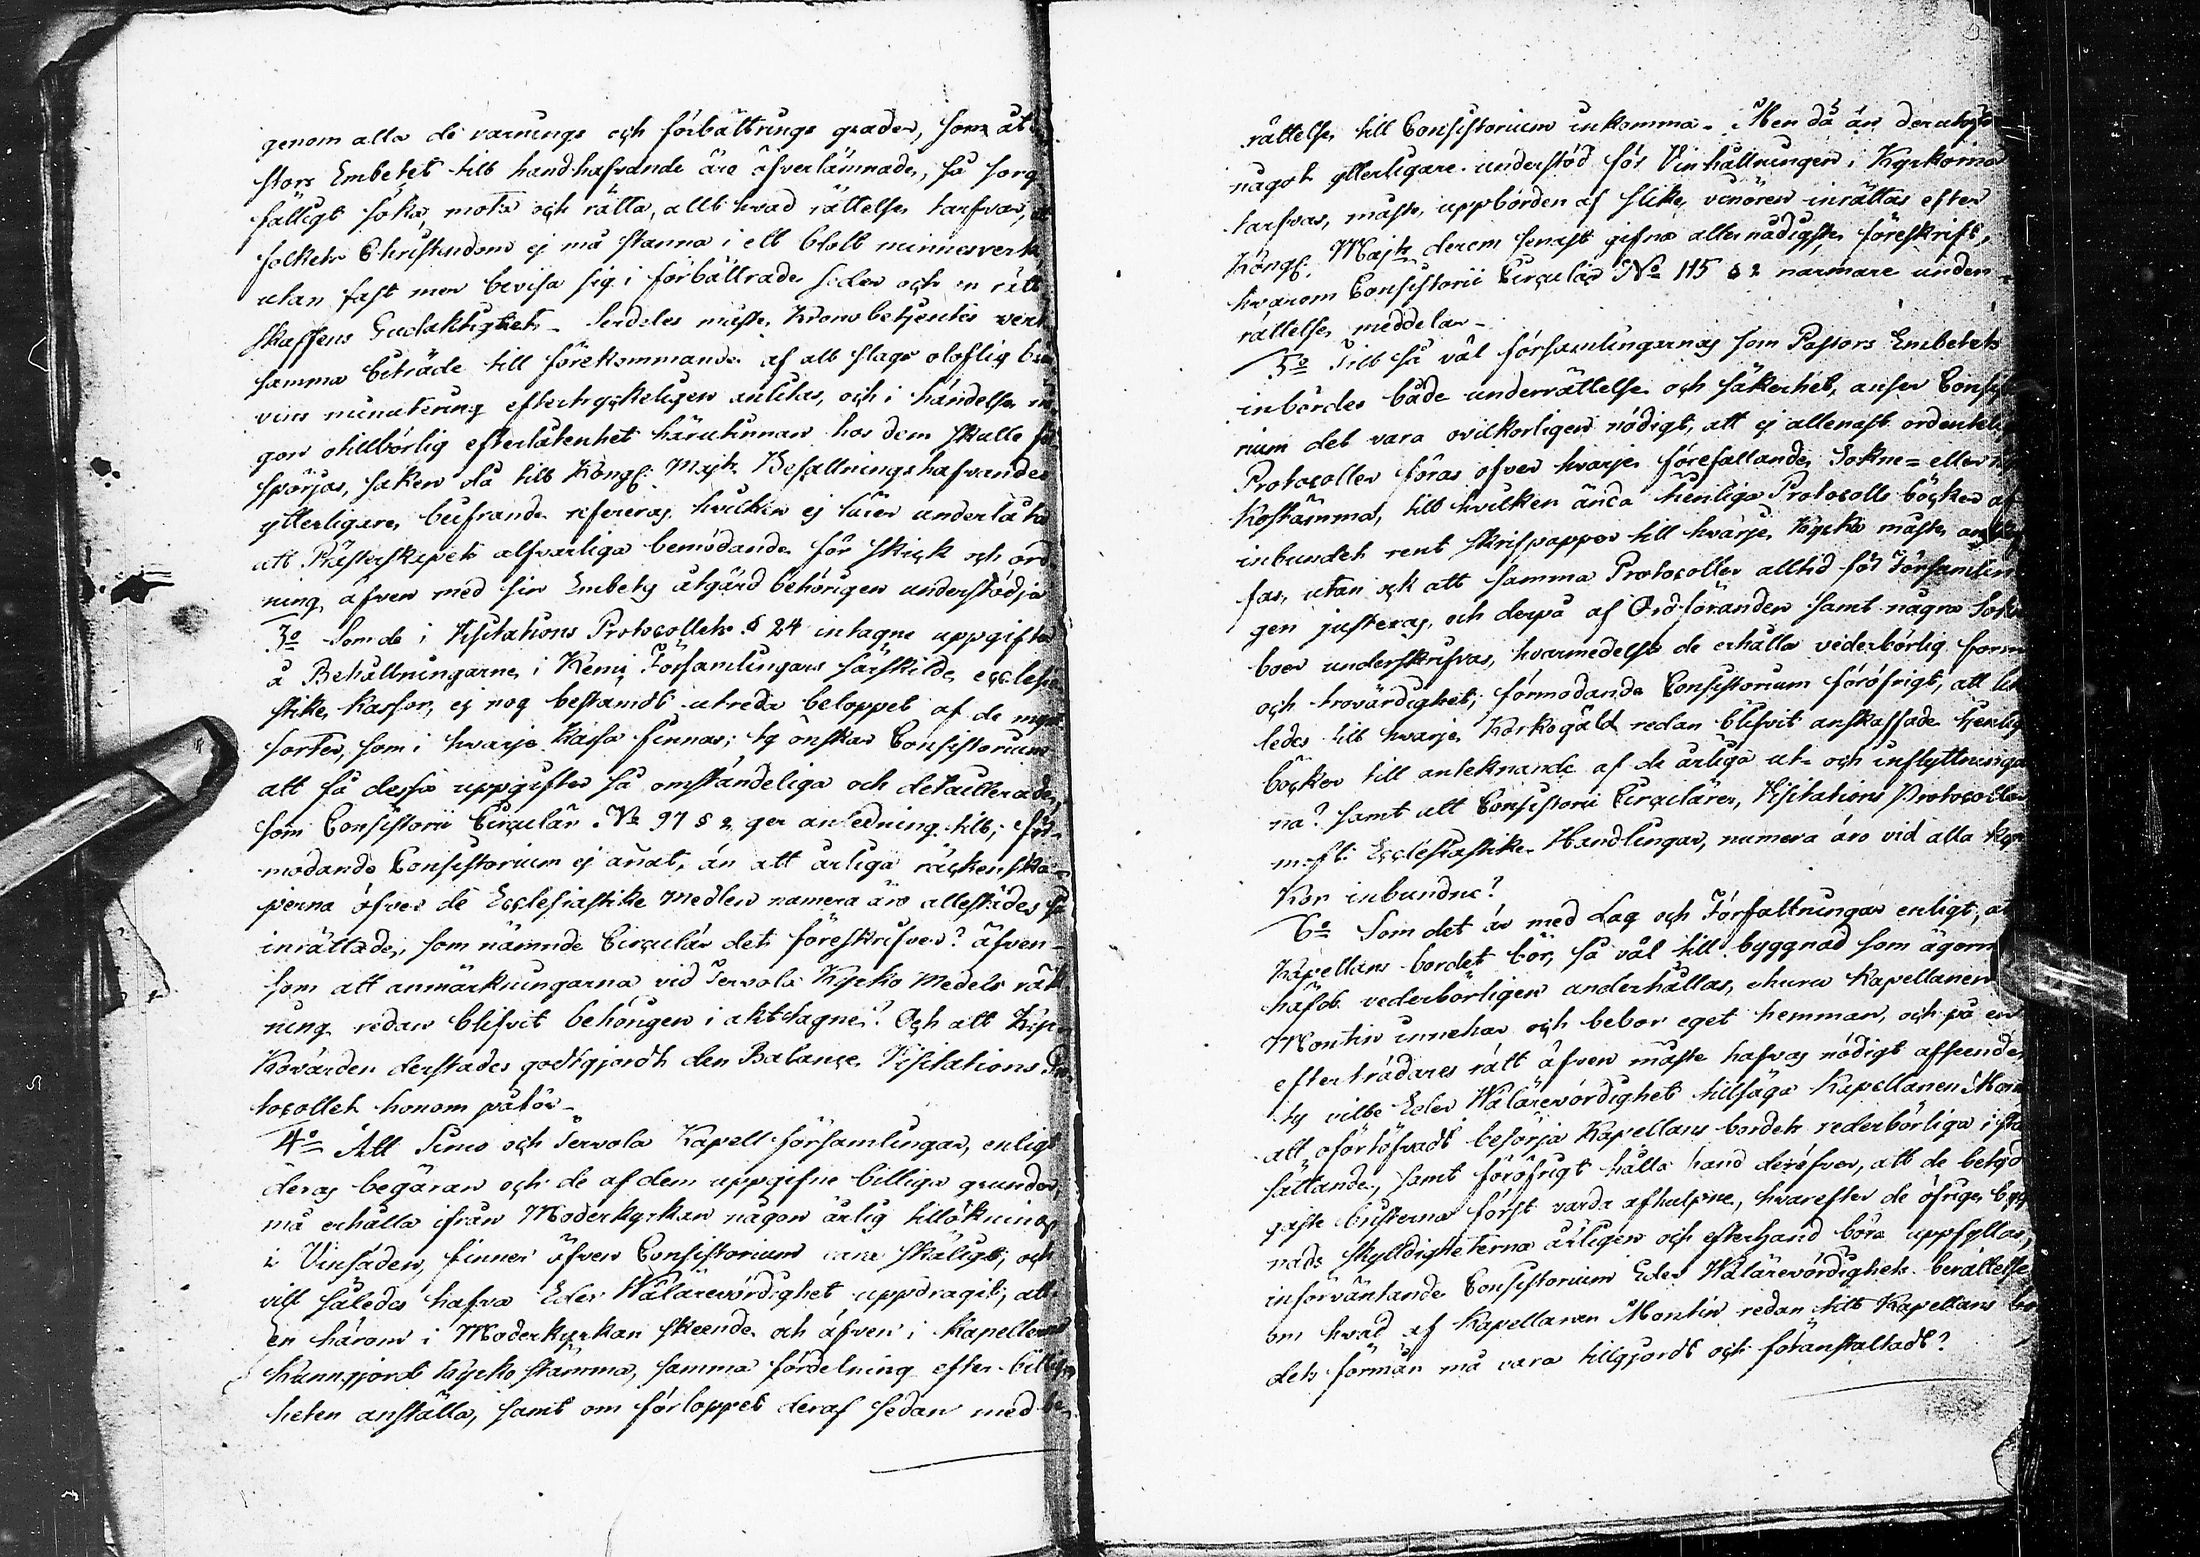 genom alla de varnings och förbättrings grader, som at
stors Embetet till handhafvande äre öfverlämnade, så sorg-
fälligt söka, mota och rätta, allt hvad rättelse tarfvar,
folkets Christendom ej må stanna i ett blott minnesverk
utan fast mer bevisa sig i förbättrade seder och en rätt
skaffens Gudaktighet. Serdeles måste Krono betjente
samma biträde till förekommande af alt slags oloflig brän
vins minutering eftertryckeligen anlitas, och i händelse nå
gon otillbörlig efterlåtenhet härutinnan hos dem skulle för
spörjas, saken då till Kongl: Majts Befallningshafvandes
ytterligare beifrande refereras hvilken ej lärer underlåta
att Prästerskapets alfvarliga bemödande för skick och ord-
ning, äfven med sin Embets åtgärd behörigen understödja
3o Som de i Visitations Protocollets § 24 intagne uppgifter
å Behållningarne, i Kemi Församlingars särskilde ecclesia
stike kassor, ej nog bestämdt utreda beloppet af de mynt
sorter, som i hvarje Kassa finnas; ty önskar Consistorium
att få dessa uppgifter så omständeliga och detaillerade,
som Consistorii Circulär No 97 § 2 ger anledning till; för-
modande Consistorium ej annat, än att årliga räckenska-
perna öfver de Ecclesiastike Medlen numera äro allestädes så
inrättade, som nämnde Circulär det föreskrifver? äfven-
som att anmärkningarna vid Tervola Kyrko Medels räk
ning redan blifvit behörigen i akt tagne? Och att Kyr-
kovärden derstädes godtgjordt den Balance, Visitations Pro-
tocollet honom påför.
4o Att Simo och Tervola Kapell-församlingar, enligt
deras begäran och de af dem uppgifne billiga grunder,
må erhålla ifrån Moderkyrkan någon årlig tillökning
i Vinsäden, finner äfven Consistorium vara skäligt, och
vill således hafva Eder Wälärevördighet uppdragit, att
en härom i Moderkyrkan skeende och äfven i Kapellerne
kunngjord kyrko stämma, samma fördelning efter billig-
heten anställa, samt om förloppet deraf sedan med be-
rättelse till Consistorium inkomma. Men då än derutöfver
något ytterligare understöd för Vinhållningen i Kyrkorna
tarfvas, måste uppbörden af slike vinören inrättas efter
Kongl. Majts derom senast gifna allernådigste föreskrift,
hvarom Consistorii Circulär No 115 § 2 närmare under-
rättelse meddelar.
5o Till så väl församlingarnas som Pastors Embetets
inbördes både underrättelse och säkerhet, anser Consisto
rium det vara ovilkorligen nödigt, att ej allenast ordentelige
Protocoller föras öfver hvarje förefallande Sokne- eller
kostämma, till hvilken ända tienliga Protocolls böcker af
inbundet rent skrifpapper till hvarje Kyrka måste anskaf
fas, utan ock att samma Protocoller alltid för Församlin
gen justeras, och derpå af Ordföranden samt några Sokne
boer underskrifvas, hvarmedelst de erhålla vederbörlig form
och trovärdighet; förmodande Consistorium föröfrigt, att
ledes till hvarje Kyrkogäld redan blifvit anskaffade tjenlig
böcker till anteknande af de årliga ut- och inflyttninga
na? samt att Consistorii Circulärer, Visitations Protocoller
m.fl. Ecclesiastike Handlingar, numera äro vid alla Kyr
kor inbundne?
6o Som det är med Lag och Författningar enligt, at
Kapellans-bordet bör, så väl till byggnad som ägorn
häfd vederbörligen underhållas, ehuru Kapellanen
Montin innehar och bebor eget hemman, och på en
efterträdares rätt äfven måste hafvas nödigt afseende,
ty ville Eder Wälärevördighet tillsäga Kapellanen Mon
att oförtöfvadt besörja Kapellans bordets vederbörliga i stå
sättande, samt föröfrigt hålla hand deröfver, att de betyd
gaste bristerna först varda afhulpne, hvarefter de öfrige bygg
nads skylldigheterna årligen och efterhand böra uppfyllas,
införväntande Consistorium Eder Wälärevördighets berättelse
om hvad af Kapellanen Montin redan till Kapellans bor
dets förmån må vara tillgjordt och föranstaltadt?